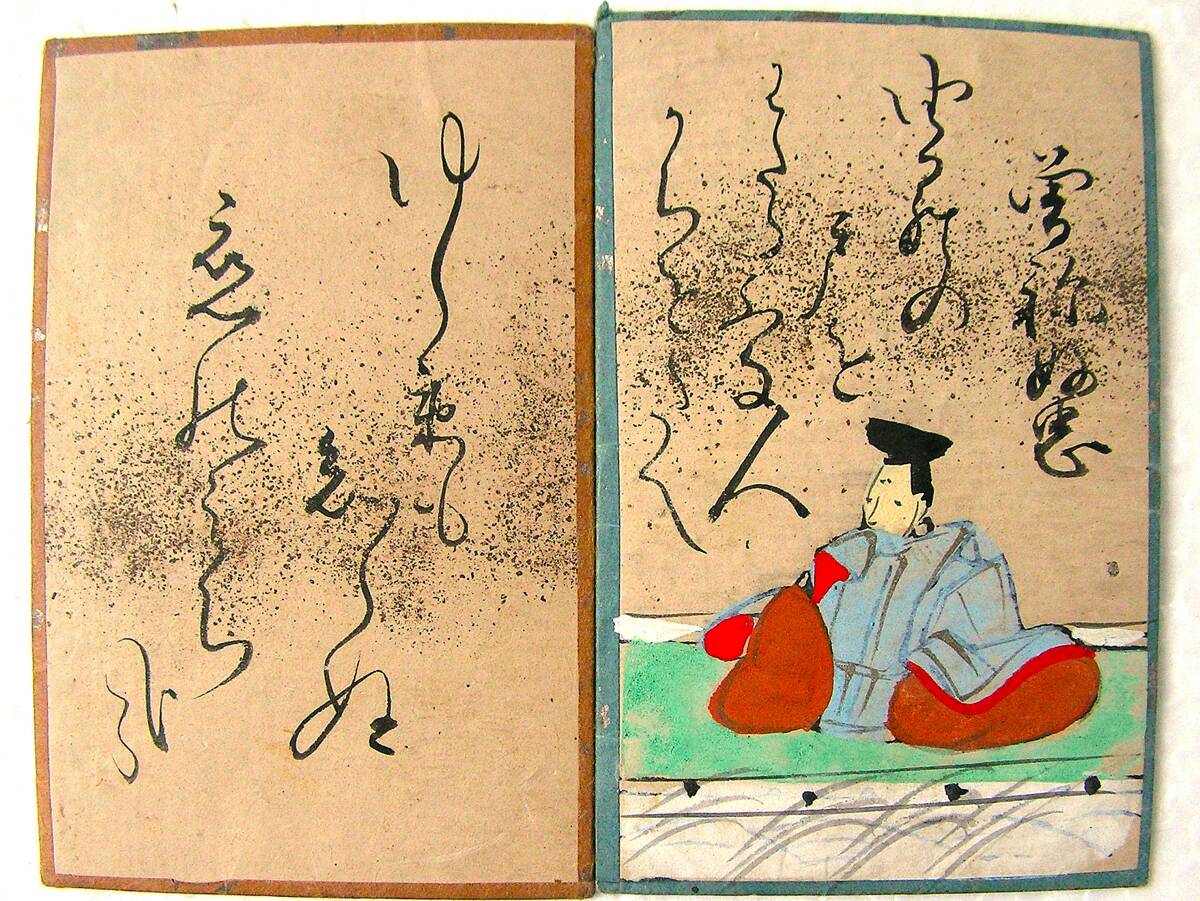 曽祢好忠
由らの
とを
わたるふな人
かちをたえ
ゆくゑも
しらぬ
恋のみち